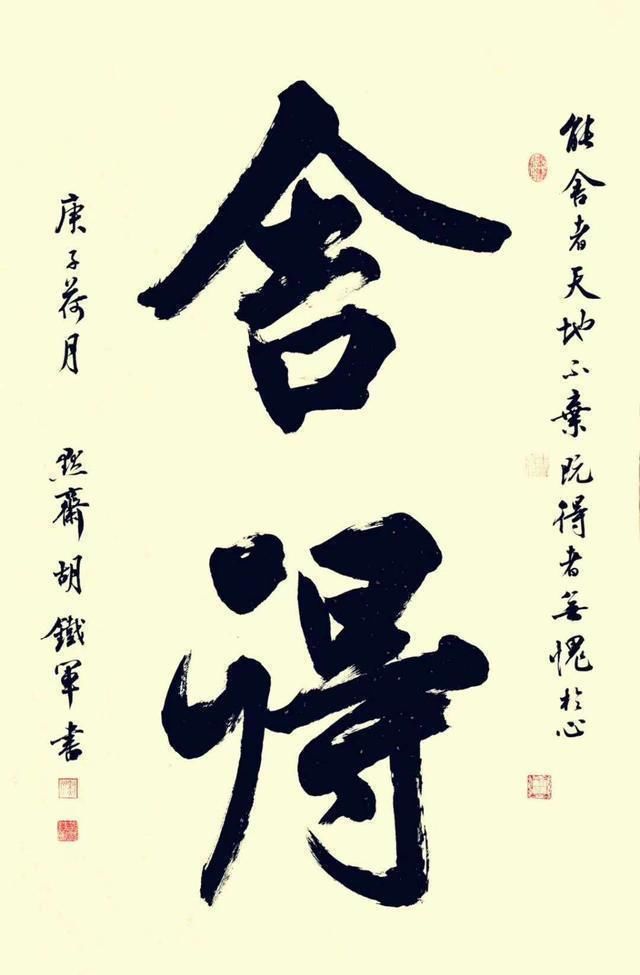 能舍者天地不棄既得者無愧於心
舍得
庚子荷月 默齋胡鐵軍書